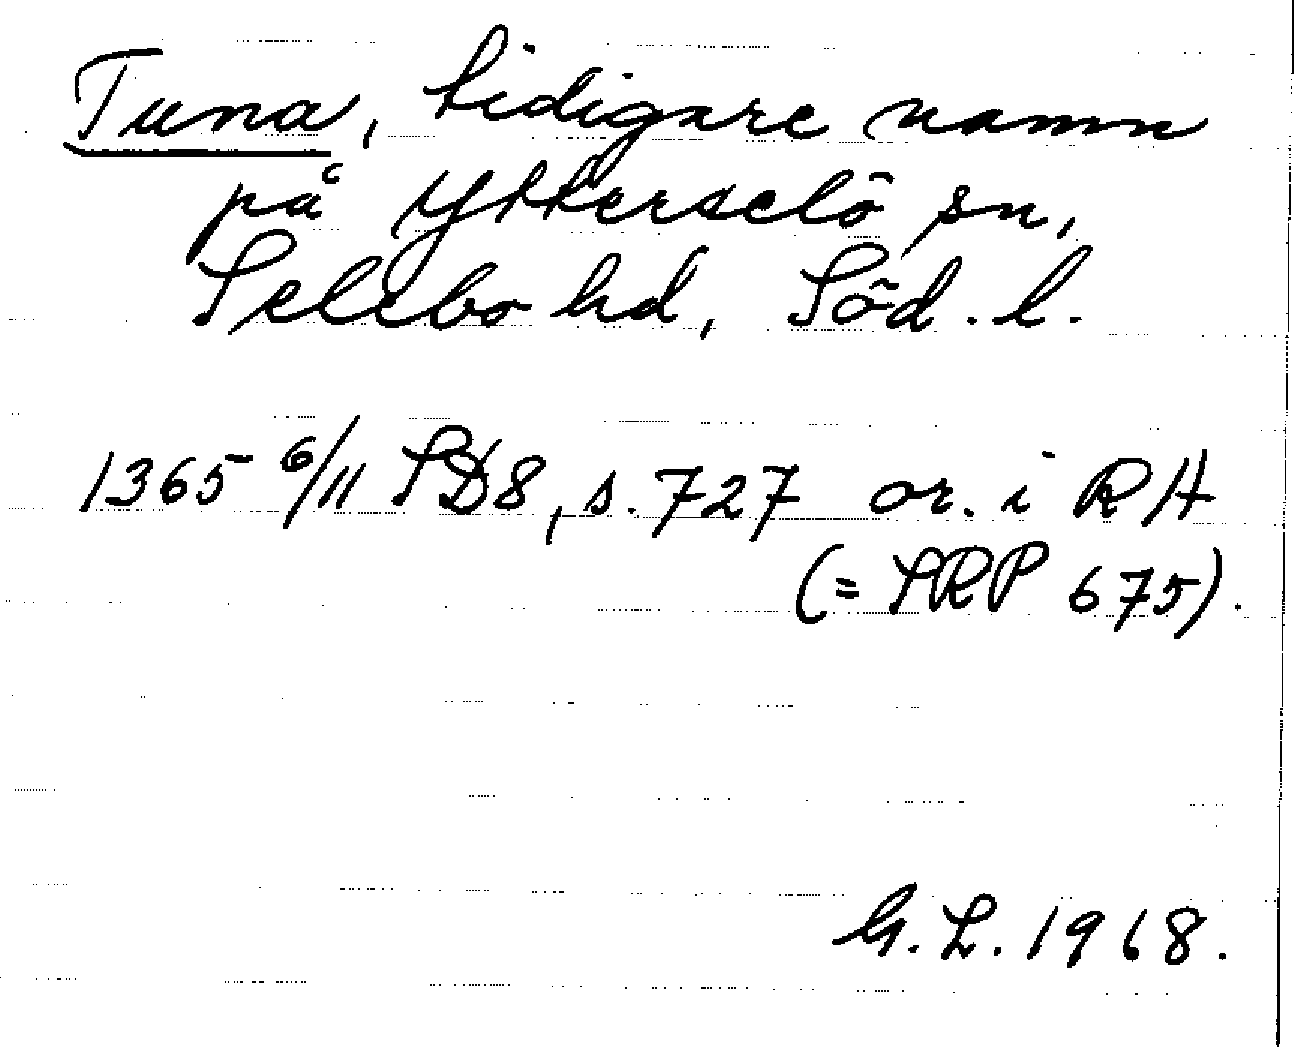 Tuna, tidigare namn
på Ytterselö sn,
Selebo hd, Söd. l.
1365 6/11 SD8, s. 727 or. i RA
(= SRP 675).
G. L. 1968.